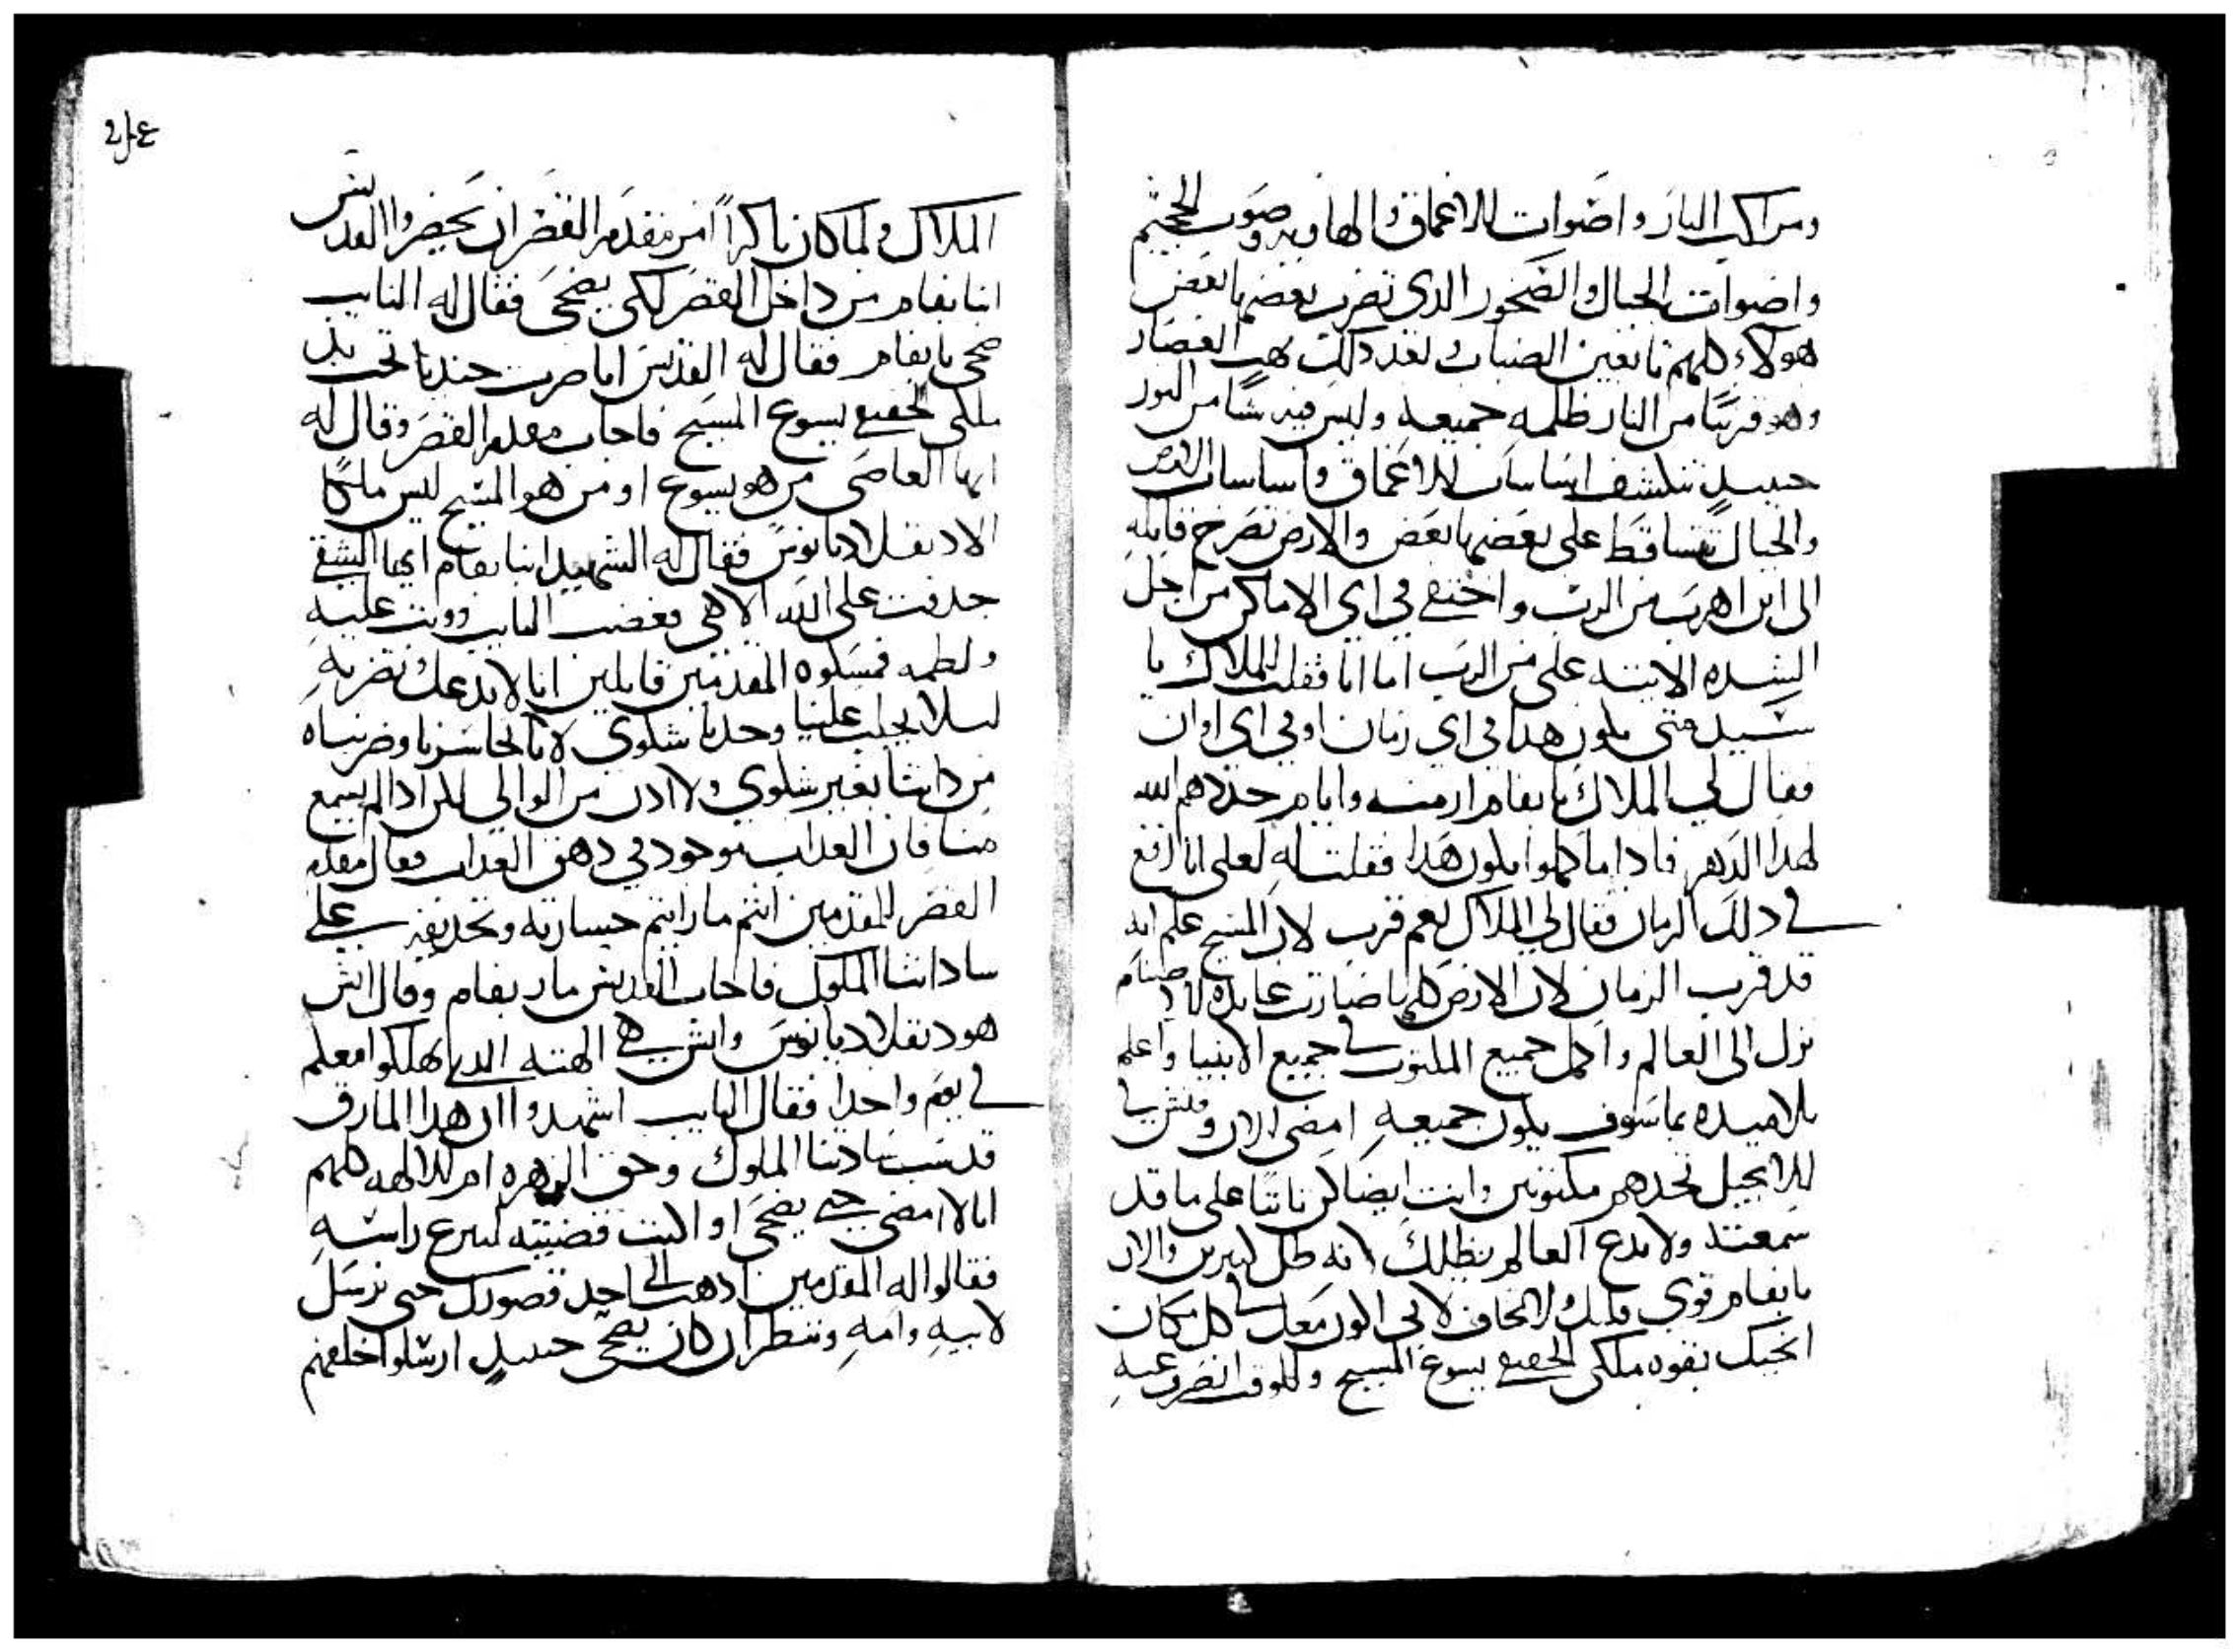 ومراكب النار واضوات للاعماق والهاويه وصوت الجحيم
واصوات الجبال والصخور الدي تضرب بعضها بعض
هولاء كلهم تابعين الضباب بعد دلك يهب
وهو قريبًا من النار ظلمه جميعه وليس فيه شيا من النور
حينيدٍ تنكشف اساسات الاعماق واساسات الارض
والجبال تتساقط على بعضها بعض والارض تصرخ قايلهِ
الى اين اهرب من الرب واختفي في اي الاماكن من اجل
الشده الاتيه علي من الرب اما انا فقلت للملاك يا
سيد متى يكون هدا في اي زمان او في اي اوان
فقال لي الملاك يا بفام ازمنه وايام حددهم الله
لهدا الدهر فادا ما كملوا يكون هدا فقلت له لعلي انا
في دلك الزمان فقال لي الملاك نعم قرب لان المسيح علم انه
قد قرب الزمان لان الارض كلها صارت عابده للاصنام
نزل الى العالم واكمل جميع المكتوب في جميع الانبيا واعلم
تلاميده بما سوف يكون جميعهِ امضي الان وفتش في
الانجيل تجدهم مكتوبين وانت ايضا كن ثابتا على ما قد
سمعته ولا تدع العالم يظلك لانه ظل والان
يا بفام قوي قلبك ولا تخاف لاني اكون معك في كل مكان
انجيك بقوه ملكي الحقيقي يسوع المسيح وللوقت انصرف عنهِ
٢٤
الملاك ولما كان باكراً امر مقدم القصر ان يحضروا القديس
انبا بفام من داخل القصر لكي يضحي فقال له النايب
ضحي يا بفام فقال له القديس انا صرت جنديا تحت يد
ملكي الحقيقي يسوع المسيح فاجاب مقدم القصر وقال له
ايها العاصي من هو يسوع او من هو المسيح ليس ملكًا
الا دقلاديانوس فقال له الشهيد انبا بفام ايها الشقي
جدفت على الله الاهي فغضب النايب ووثب عليهِ
ولطمه فمسكوه المقدمين قايلين انا لا ندعك تضربهِ
ليلا يجلب علينا وحدنا شكوى لاننا تجاسرنا وضربناه
من داتنا بغير شكوي ولا ادن من الوالي لكن ادا لم يسمع
منا فان العداب موجود في دهق العداب فقال مقدم
القصر للمقدمين انتم ما رايتم جسارته وتجديفه على
ساداتنا الملوك فاجاب القديس مار بفام وقال ايش
هو دقلاديانوس وايش هي الهته الدي يهلكوا معكم
في يوم واحدا فقال النايب اشهدوا ان هدا المارق
قد سب سادتنا الملوك وحق الزهره ام الالهه كلهم
انا لا امضي حتى يضحي او اكتب قضيته لينزع راسهِ
فقالوا له المقدمين ادهب الى احد قصورك حتى نرسل
لابيهِ وامهِ وننظر ان كان يضحي حينيدٍ ارسلوا خلفهم